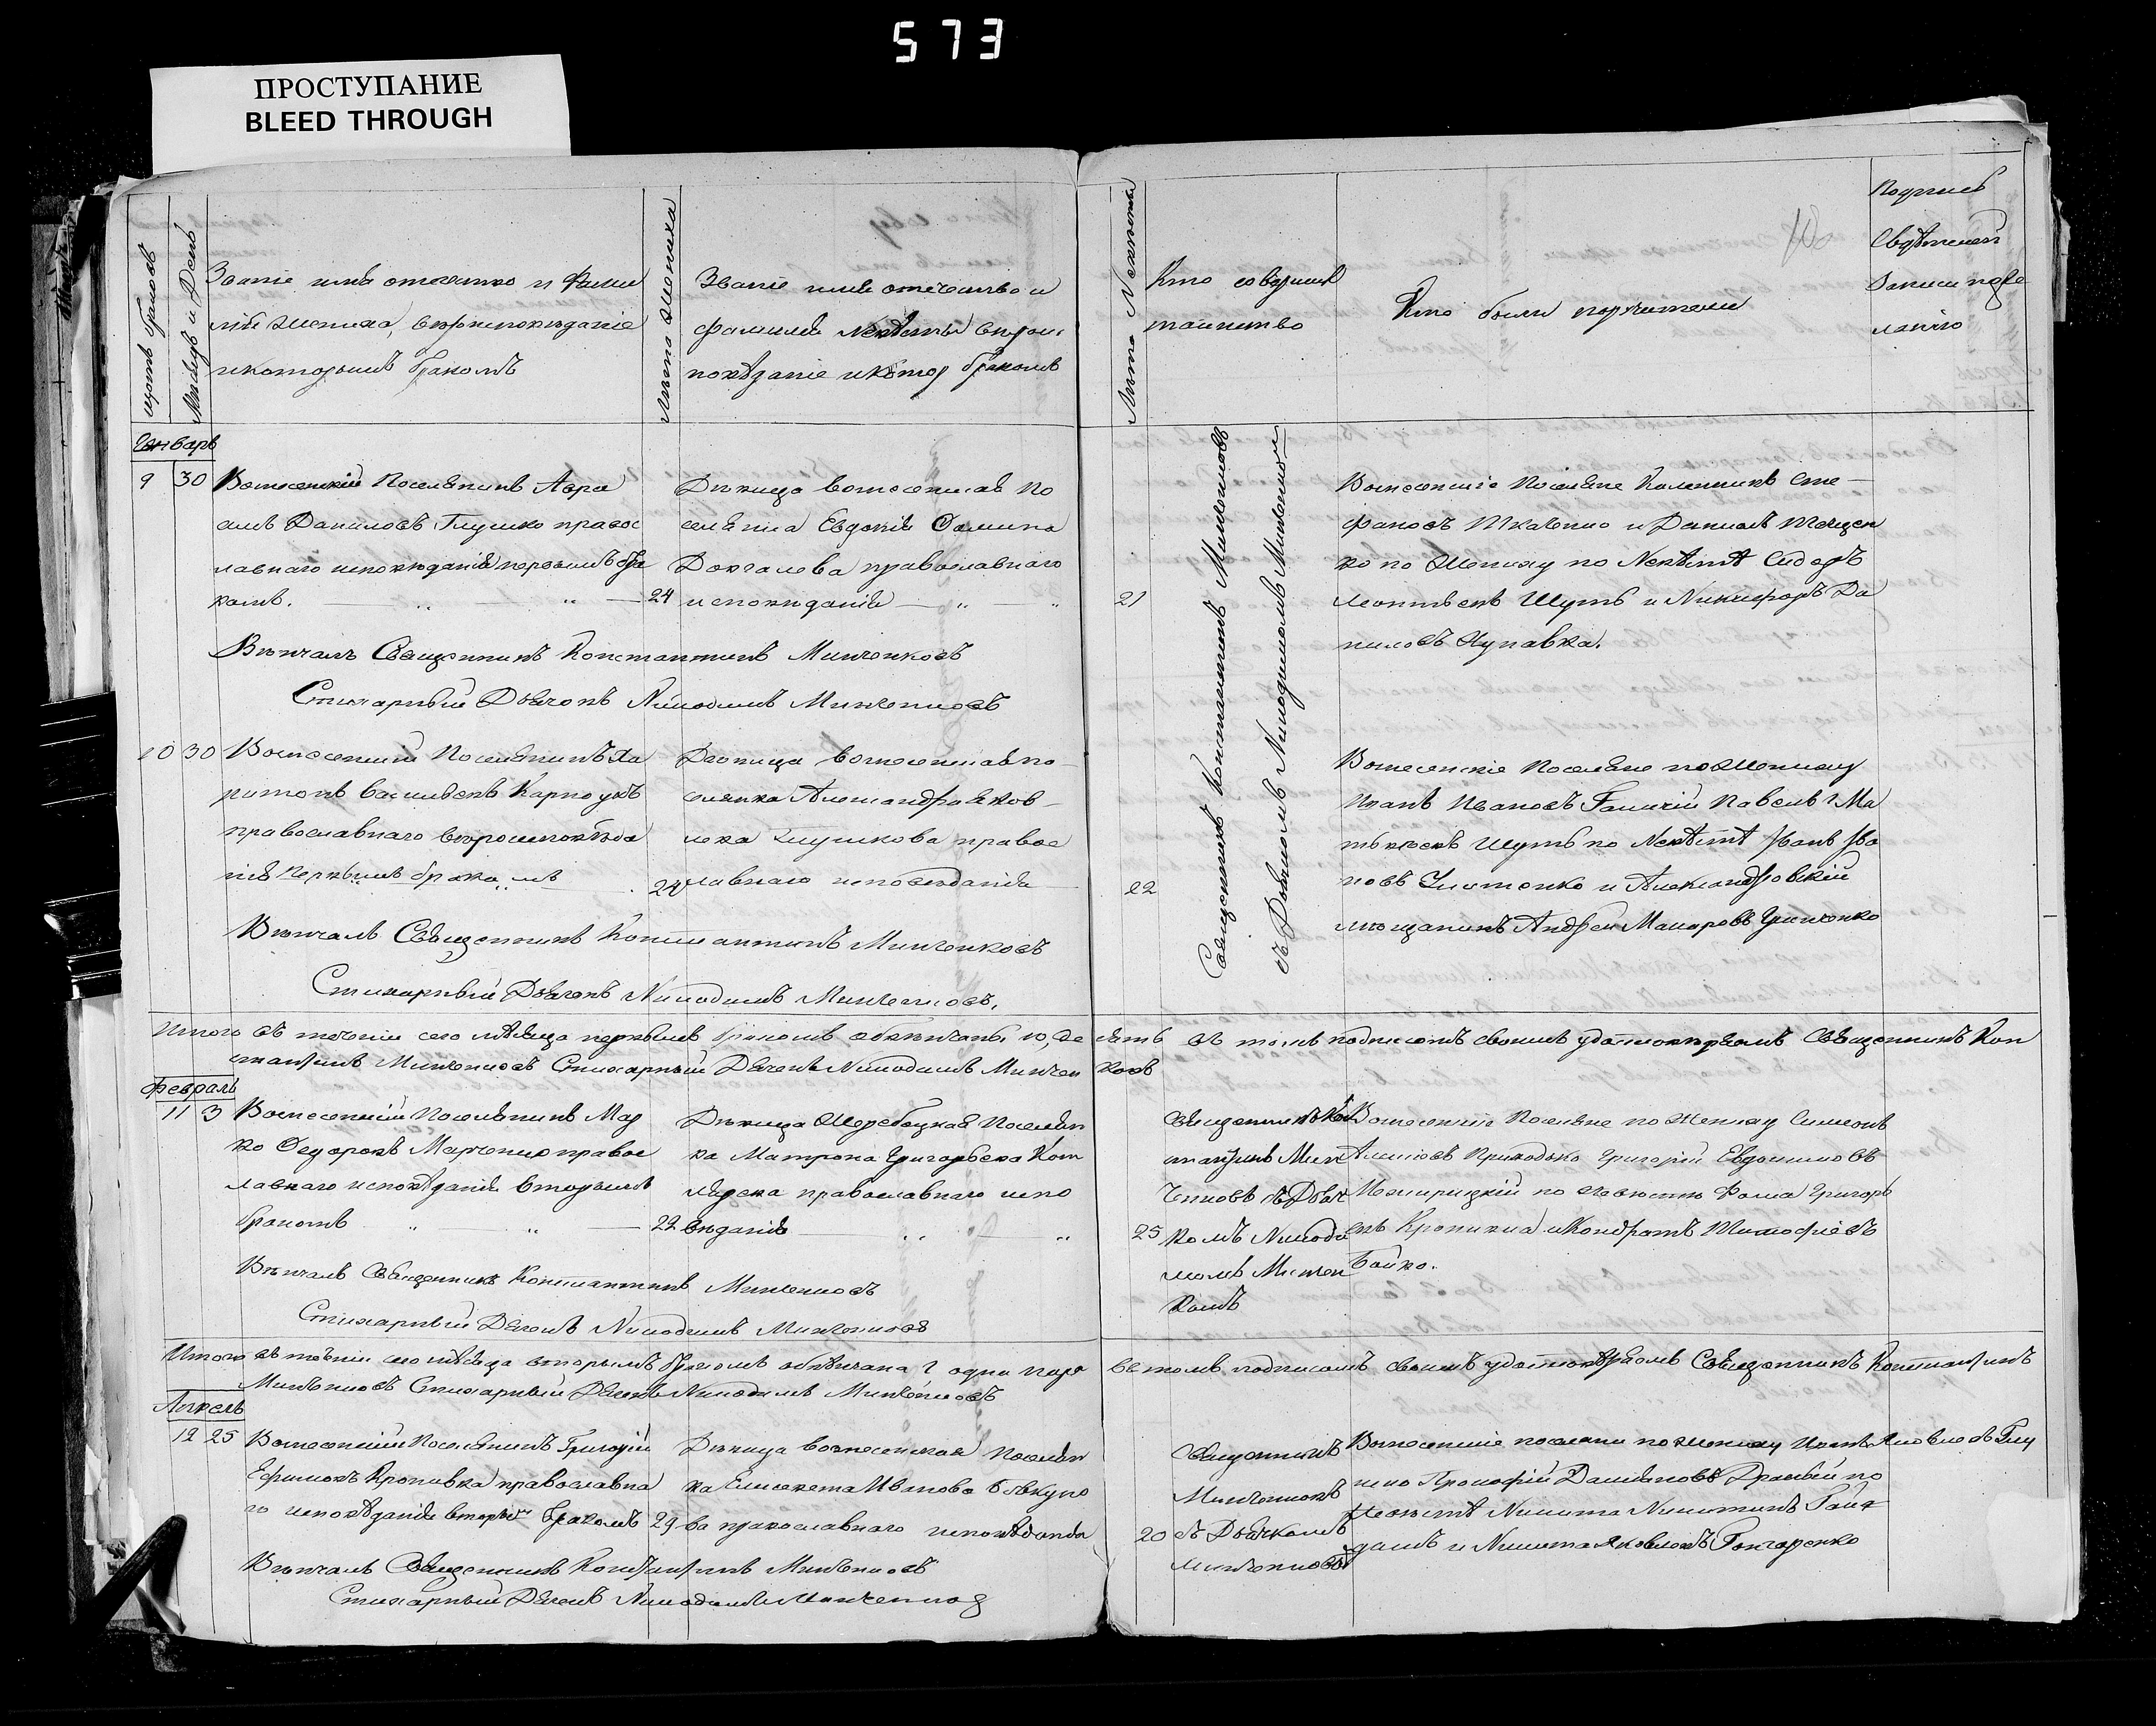 573
ПРОСТУПАНИЕ
BLEED THROUGH
счетъ браковъ
Мѣсяцъ и День
Званіе имя отечество и Фами
лія Жениха, вѣроисповѣданіе
и которымъ бракомъ
Лета Жениха
Званіе имя отечество и
фамилія Невѣсты вѣрои
повѣданіе и котор бракомъ
Лета Невесты
Кто совершил
таинство
Кто были поручители
Подписъ
Свѣтелей
Записи по
ланію
Январь
9 30 Вознесенскій Поселянинъ Авра
амъ Даниловъ Глушко правос
лавнаго исповѣданія первымъ бра
комъ. 24
Дѣвица вознесенская по
селянка Евдокія Фомина
Довгалева православнаго
исповѣданія
21
Вознесенскіе Поселяне Калинникъ Сте
фановъ Ткаченко и Данилъ Тещен
ко по Жениху по Невѣстѣ Сидоръ
Леонтьевъ Шутъ и Никифоръ Да
ниловъ Чупавка.
Священникъ Константинъ Минченковъ
съ Дьячкомъ Никодимомъ Минченком
Вѣнчалъ Священникъ Константинъ Минченковъ
Стихарный Дьячокъ Никодимъ Минченковъ
10 30 Вознесенскій Поселянинъ Ха
ритонъ Васильевъ Карпоухъ
православнаго вѣроисповѣда
нія Первымъ бракомъ 24
Дѣвица вознесенская по
селянка Александра Яков
лева Глушкова правос
лавнаго исповѣданія
22
Вознесенскіе Поселяне по Жениху
Иванъ Ивановъ Галичій Павелъ Ма
твѣевъ Шутъ по Невѣстѣ Иванъ Ива
новъ Игнатенко и Александровскій
мѣщанинъ Андрей Макаровъ Гринченко
Вѣнчалъ Священникъ Константинъ Минченковъ
Стихарный Дьячекъ Никодимъ Минченковъ.
Итого въ теченіи сего мѣсяца первымъ бракомъ обвѣнчаны 10, де сять въ томъ подписомъ своимъ удостовѣряемъ Священникъ Кон
стантинъ Минченковъ Стихарный Дячекъ Никодимъ Минчен ковъ
Февраль
11 3 Вознесенскій Поселянинъ Мар
ко Федоровъ Марченко правос
лавнаго исповѣданія вторымъ
бракомъ 22
Дѣвица Жеребецкая Поселян
ка Матрона Григорьева Кот
лярева православнаго испо
вѣданія
25
Священникъ Кон
стантинъ Мин
ченковъ съ Дьяч
комъ Никоди
момъ Минчен
комъ
Вознесенскіе Поселяне по Жениху Симеонъ
Алексѣевъ Приходько Григорій Евдокимовъ
Межирицкій по Невѣсты Фома Григорь
евъ Кропивка и Кондратъ Тимофіевъ
Бойко.
Вѣнчалъ Священникъ Константинъ Минченковъ
Стихарный Дячекъ Никодимъ Минченковъ
Итого въ теченіи сего мѣсяца вторымъ бракомъ обвѣнчана 1 одна пара въ томъ подписомъ своимъ удостовѣряемъ Священникъ Константинъ
Минченковъ Стихарный Дячекъ Никодимъ Минченковъ
Апрель
12 25 Вознесенскій Поселянинъ Григорій
Ефимовъ Кропивка православна
го исповѣданія вторым бракомъ 29
Дѣвица вознесенская Поселян
ка Елисавета Иванова
ва православнаго исповѣданія
20
Священникъ
Минченковъ
съ Дьячкомъ
Минченковым
Вознесенскіе поселяни по Жениху Иванъ Яковлевъ Глу
шко Прокофій Даміановъ по
Невѣстѣ Никита Никитинъ Гай
дамъ и Никита Яковлевъ Гончаренко
Вѣнчалъ Священникъ Константинъ Минченковъ
Стихарный Дячекъ Никодимъ Минченков